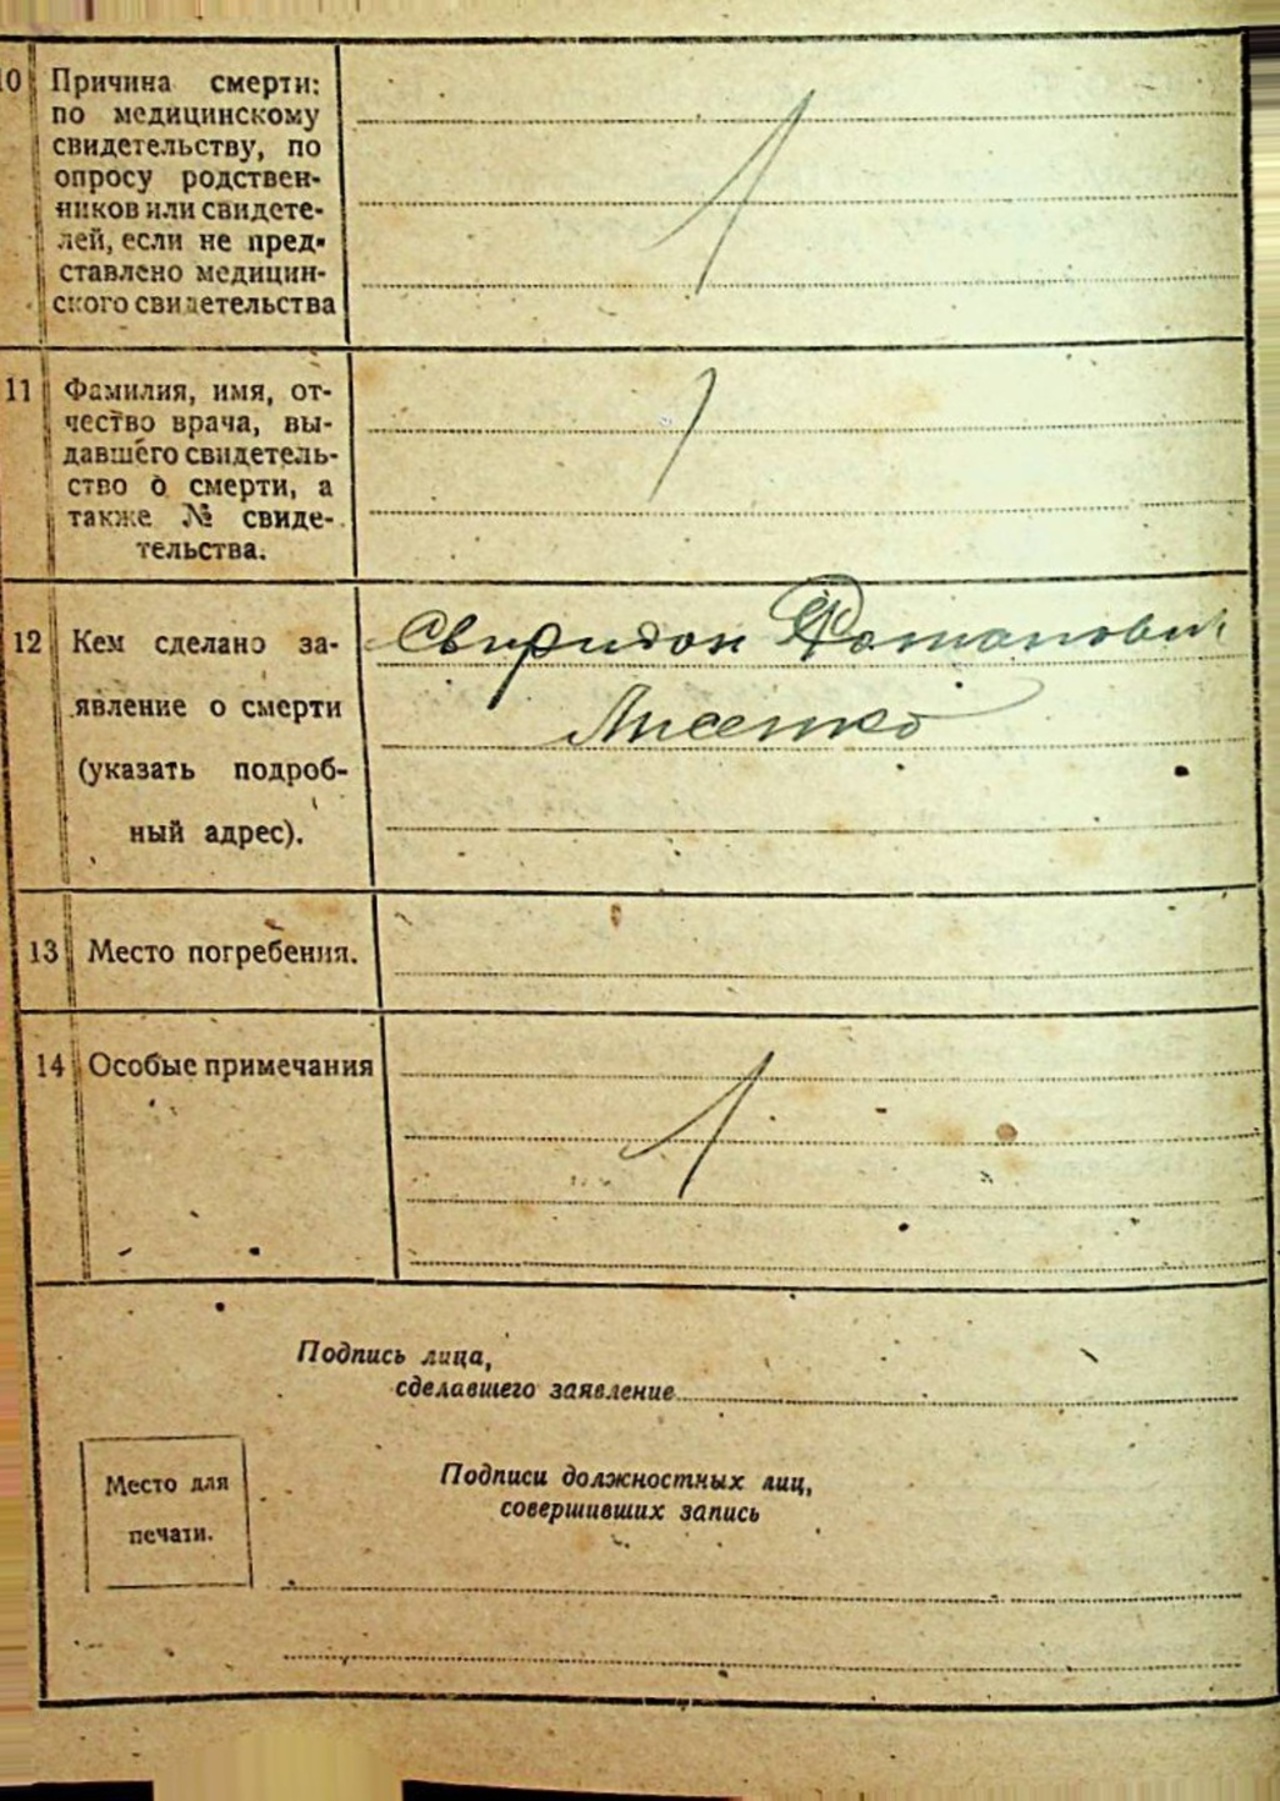 10 Причина смерти:
по медицинскому
свидетельству, по
опросу родствен-
ников или свидете-
лей, если не пред-
ставлено медицин-
ского свидетельства
11 Фамилия, имя, от-
чество врача, вы-
давшего свидетель-
ство о смерти, а
также № свиде-
тельства.
12 Кем сделано за-
явление о смерти
(указать подроб-
ный адрес).
Свиридон
Лисенко
13 Место погребения.
14 Особые примечания
Подпись лица,
сделавшего заявление
Место для
печати.
Подписи должностных лиц,
совершивших запись